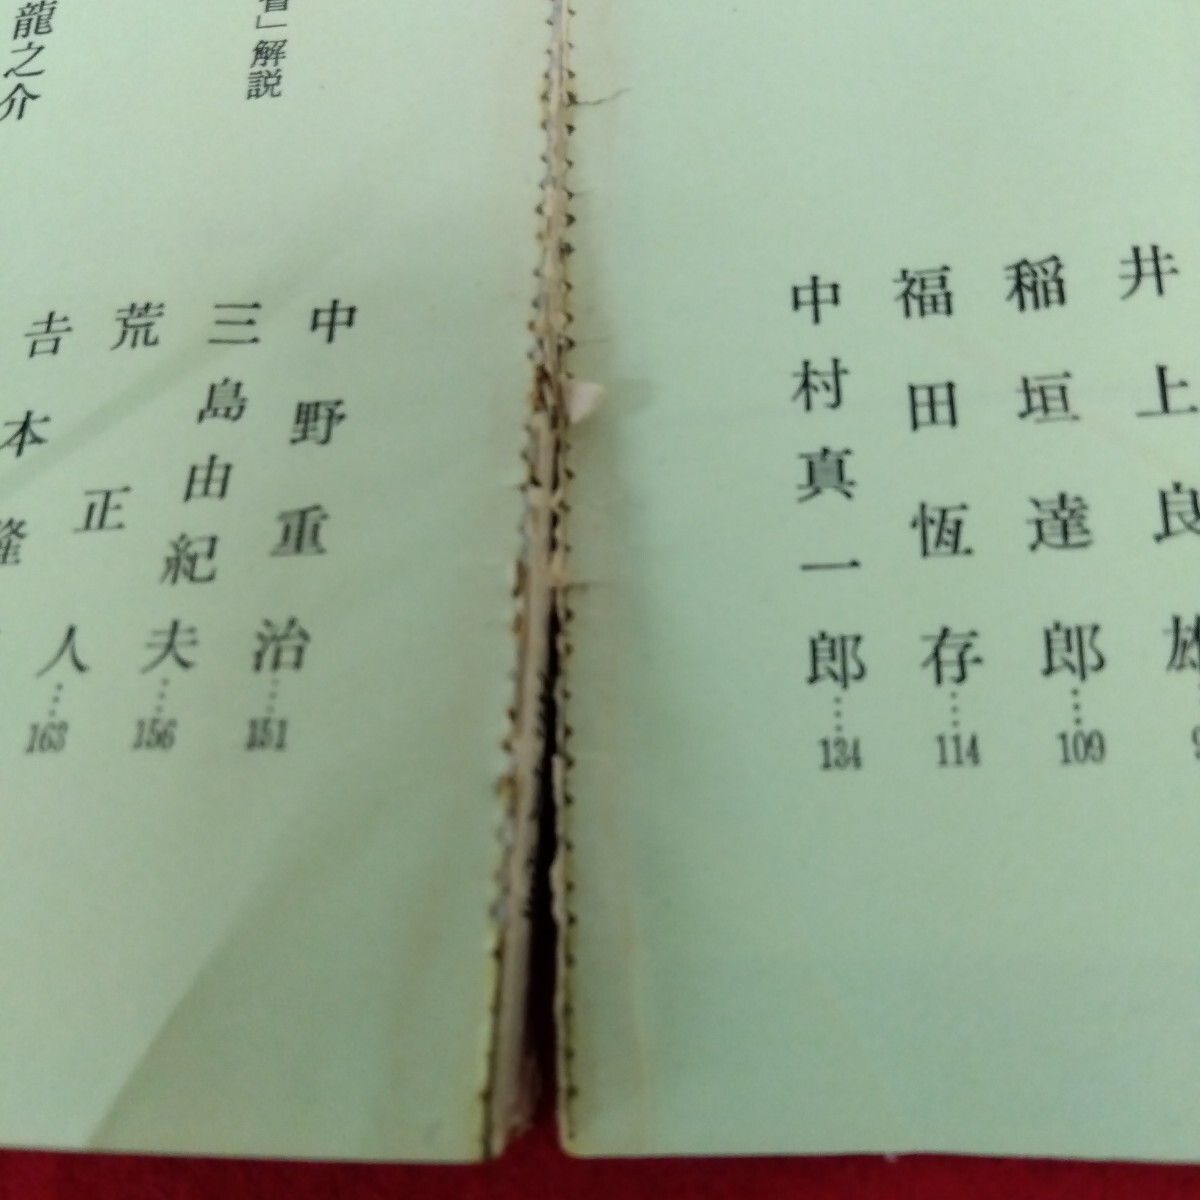 井上良雄
稲垣達郎……109
福田恆存……114
中村真一郎……134
」解説
中野重治……151
三島由紀夫……156
荒正人……163
龍之介
吉本隆